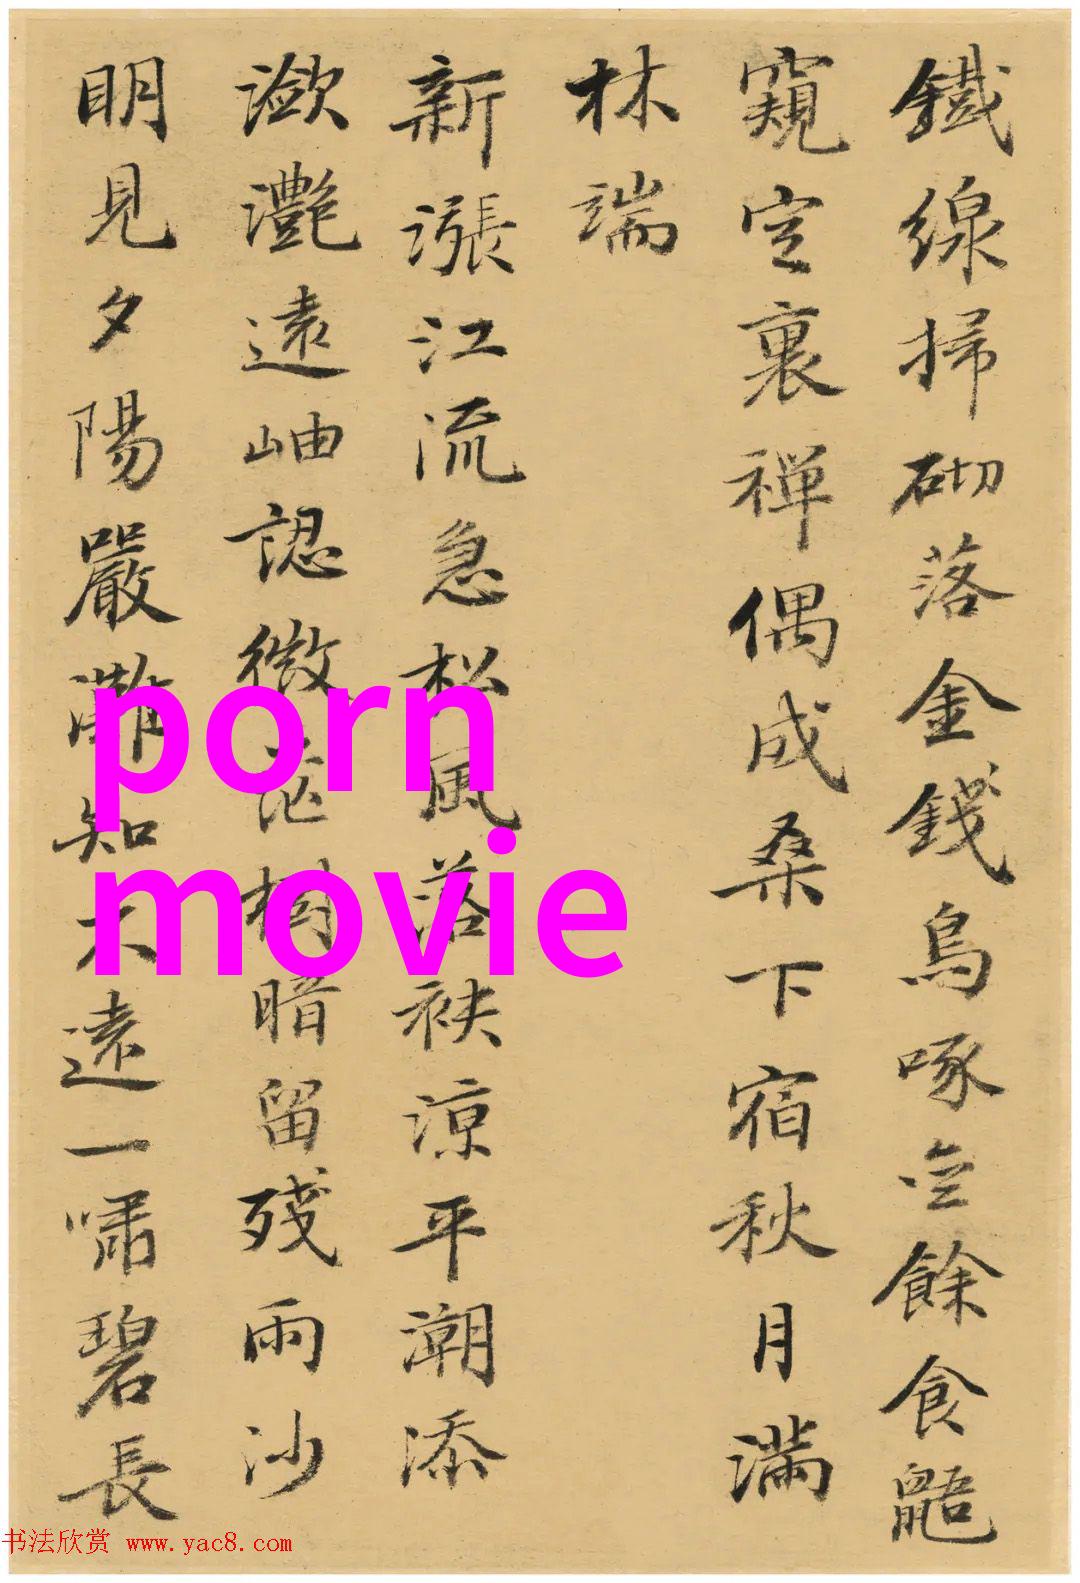 鐵線掃砌落金錢烏啄空餘食鼯
窺定裏禅偶成桑下宿秋月滿
林端
新漲江流急松風落袂涼平潮添
瀲灧遠岫認微茫樹暗留殘雨沙
明見夕陽嚴灘知不遠一嘯碧長
porn
movie
书法欣赏 www.yac8.com